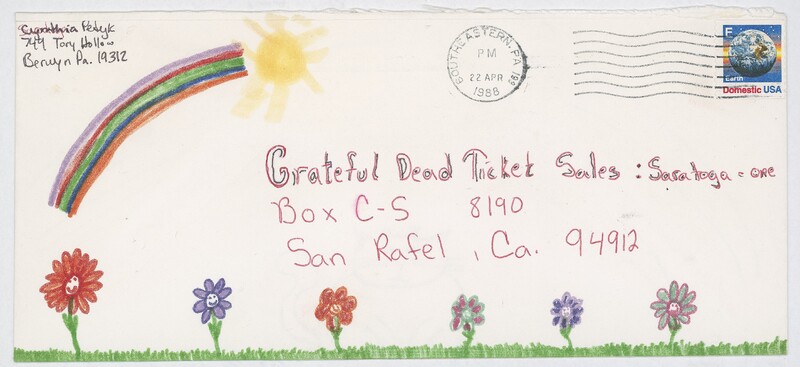 Petyk
744 Tory Hollow
Berwyn Pa. 19312
SOUTHEASTERN, PA
PM
22 APR
1988
F
Earth
Domestic USA
Grateful Dead Ticket Sales : Saratoga - ONE
Box C-S 8190
San Rafel , Ca. 94912